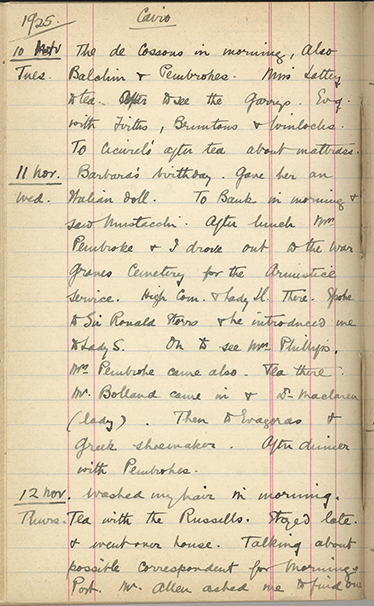 1925. Cairo
10 Nov The de Cossons in morning, Also
Tues. Balalin & Pembrokes. Mrs Lattey
to tea. After to see the Gorrys. Evg.
with Firths, Bruntons & Winlocks.
To Cicurel's after tea about mattrass.
11 Nov. Barbara's birthday. Gave her an
Wed. Italian doll. To Bank in morning &
saw Mustacchi. After lunch Mrs
Pembroke & I drove out to the War
Graves Cemetery for the Armistice
Service. High Com. & Lady Ll. there. Spoke
to Sir Ronald Storrs & he introduced me
to Lady S. On to see Mrs Phillips.
Mrs Pembroke came also. Tea there
Mr. Bolland came in & Dr Maclaren
(lady). Then to Evagoras &
Greek shoemaker. After dinner
with Pembrokes.
12 Nov. Washed my hair in morning.
Thurs. Tea with the Russells. Stayed late.
& went over house. Talking about
possible correspondent for Morning
Post. Mr. Allen asked me to find one